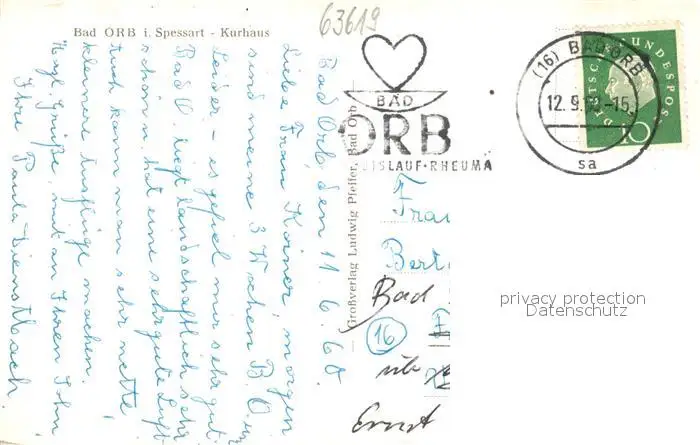 63619
Bad ORB i. Spessart - Kurhaus
Bad Orb, den 11.6.60
Liebe Frau Koiner, morgen
sind meine 3 Wochen B. O. um
Leider - es gefiel mir sehr gut.
Bad O. liegt landschaftlich sehr
schön, hat eine sehr gute Luft
auch kann man sehr nette
kleine Ausflüge machen.
Hzl. Grüße, mit an Ihren Sohn
Ihre Paula Dienstbach
Großverlag Ludwig Pfeifer, Bad Orb
BAD
ORB
EISLAUF·RHEUMA
(16) BAD ORB
12.9. -15
sa
DEUTSCHE BUNDESPOST
10
Frau
Bert
Bad
16
üb
Ernst
privacy protection
Datenschutz